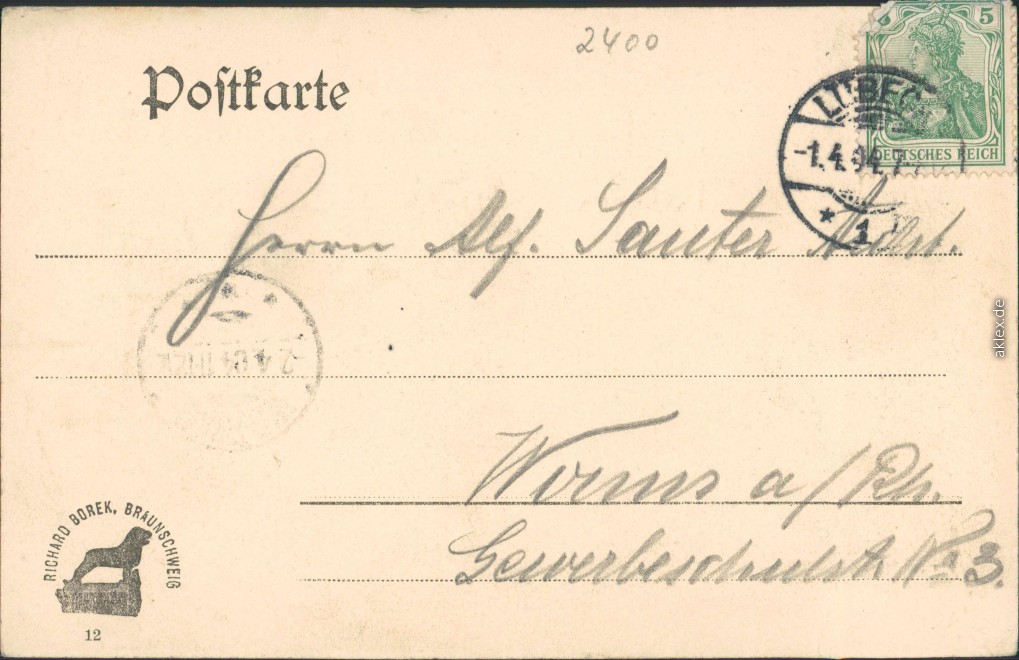 2400
Postkarte
5
DEUTSCHES REICH
LÜBECK
-1.4.04.7-
* 1
Herrn Alf. Sauter Nchf.
2.4.04
Worms a/Rh.
Gewerbeschulstr. No 3.
RICHARD BOREK, BRAUNSCHWEIG
12
aklex.de